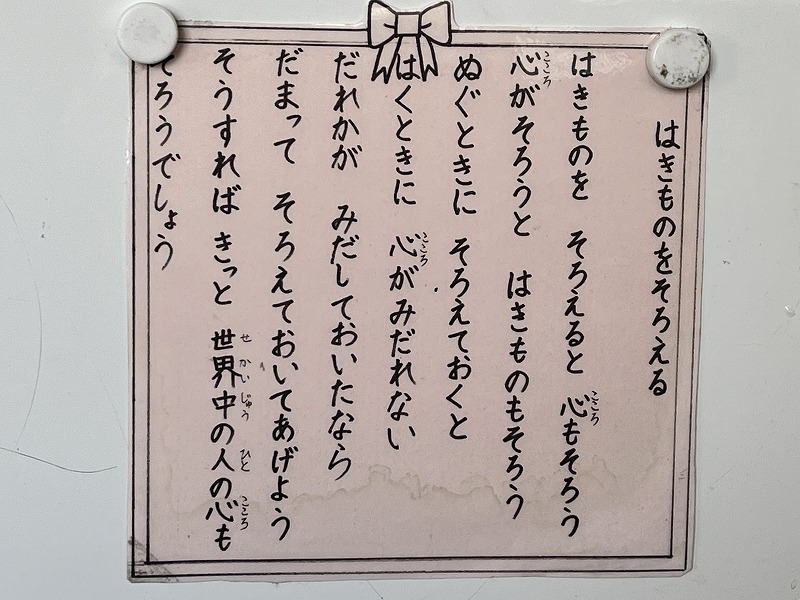 はきものをそろえる
はきものを　そろえると　心もそろう
心がそろうと　はきものもそろう
ぬぐときに　そろえておくと
はくときに　心がみだれない
だれかが　みだしておいたなら
だまって　そろえておいてあげよう
そうすれば　きっと　世界中の人の心も
そろうでしょう